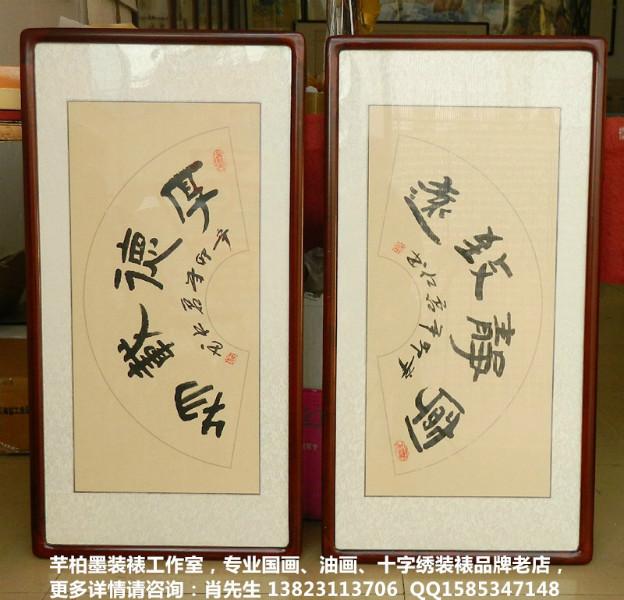 厚德载物
宁静致远
芊柏墨装裱工作室，专业国画、油画、十字绣装裱品牌老店，
更多详情请咨询：肖先生 13823113706 QQ1585347148